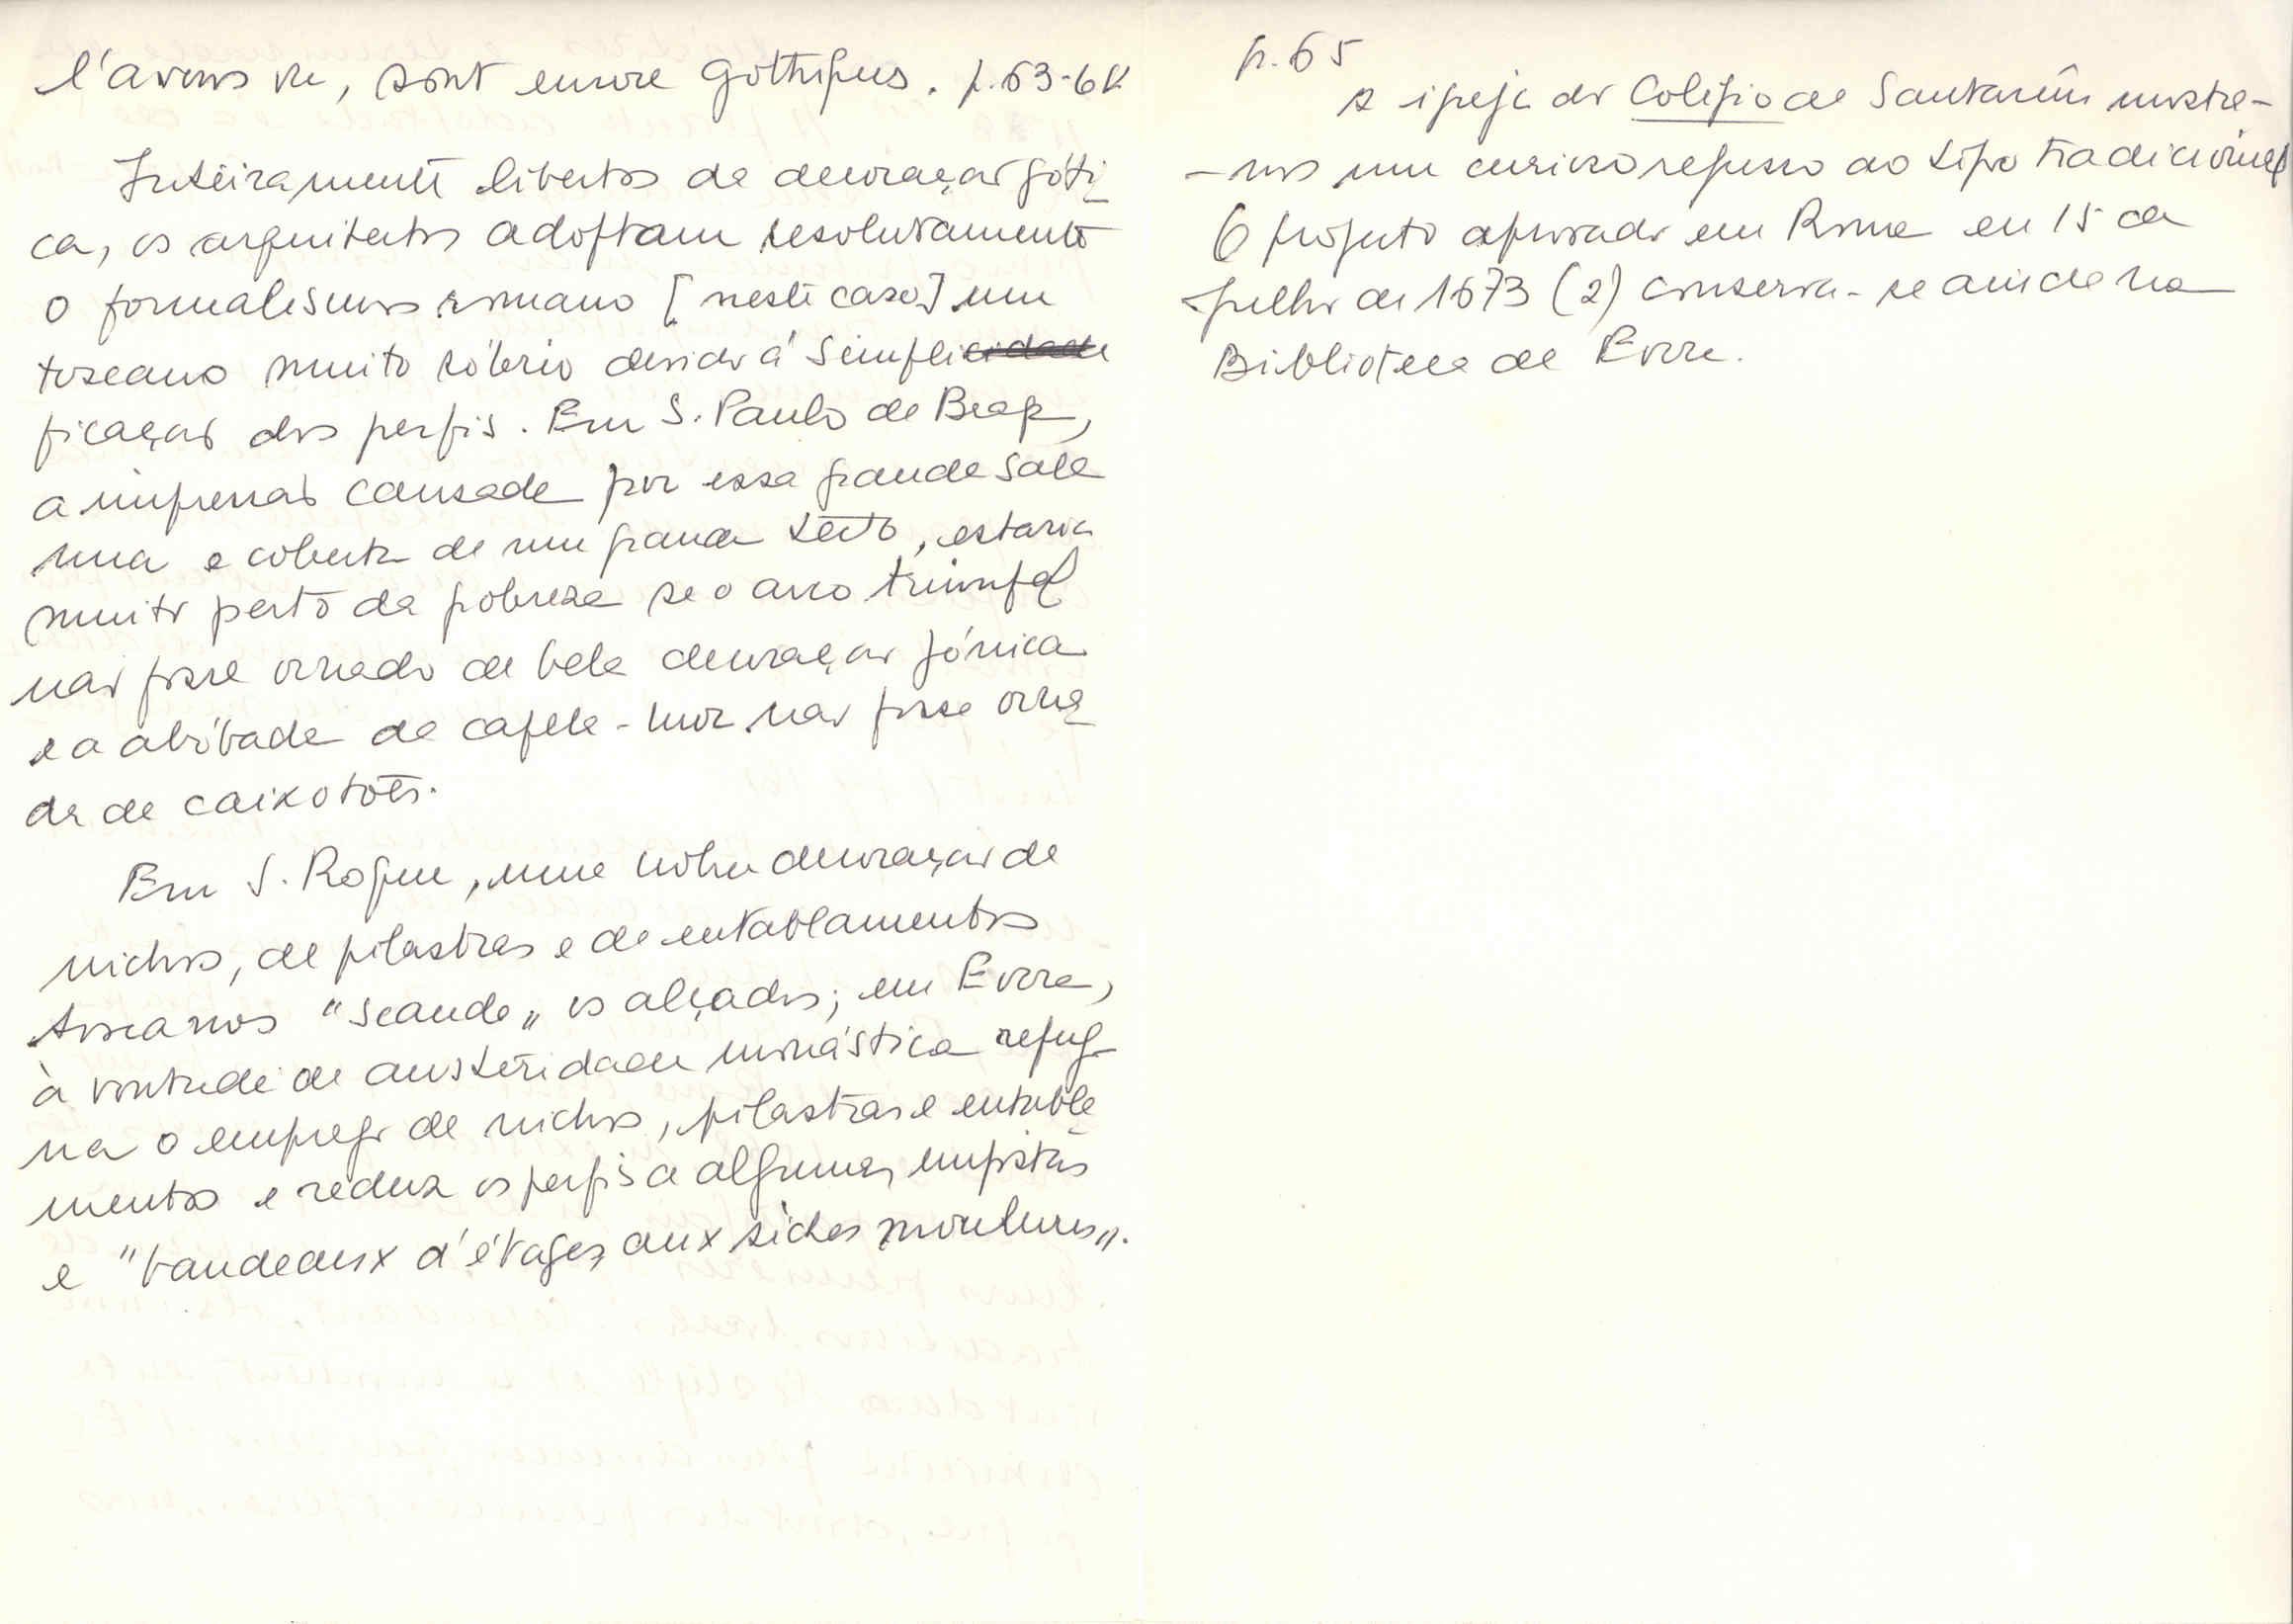 l'avons vu, sont encore gothiques. p. 63-64
Inteiramente libertos da decoração góti
ca, os arquitectos adoptam resolutamente
o formalismo romano [neste caso] um
toscano muito sóbrio devido á simplicidade
ficação dos perfis. Em S. Paulo de Braga,
a impressão causada por essa grande sala
nua e coberta de um grande tecto, estaria
muito perto da pobreza se o arco triunfal
não fosse ornado de bela decoração jónica
e a abóbada da capela-mor não fosse orna
da de caixotões.
Em S. Roque, uma nobre decoração de
nichos, de pilastras e de entablamentos
toscanos "scande" os alçados; em Evora,
à vontade de austeridade monástica repug-
na o emprego de nichos, pilastras e entabla
mentos e reduz os perfis a algumas impostas
e "bandeaux d'étages aux sèches moulures".
p. 65
A igreja do Colégio de Santarém mostra-
-nos um curioso regresso ao tipo tradicional
O projecto aprovado em Roma em 15 de
Julho de 1673 (2) conserva-se ainda na
Biblioteca de Evora.